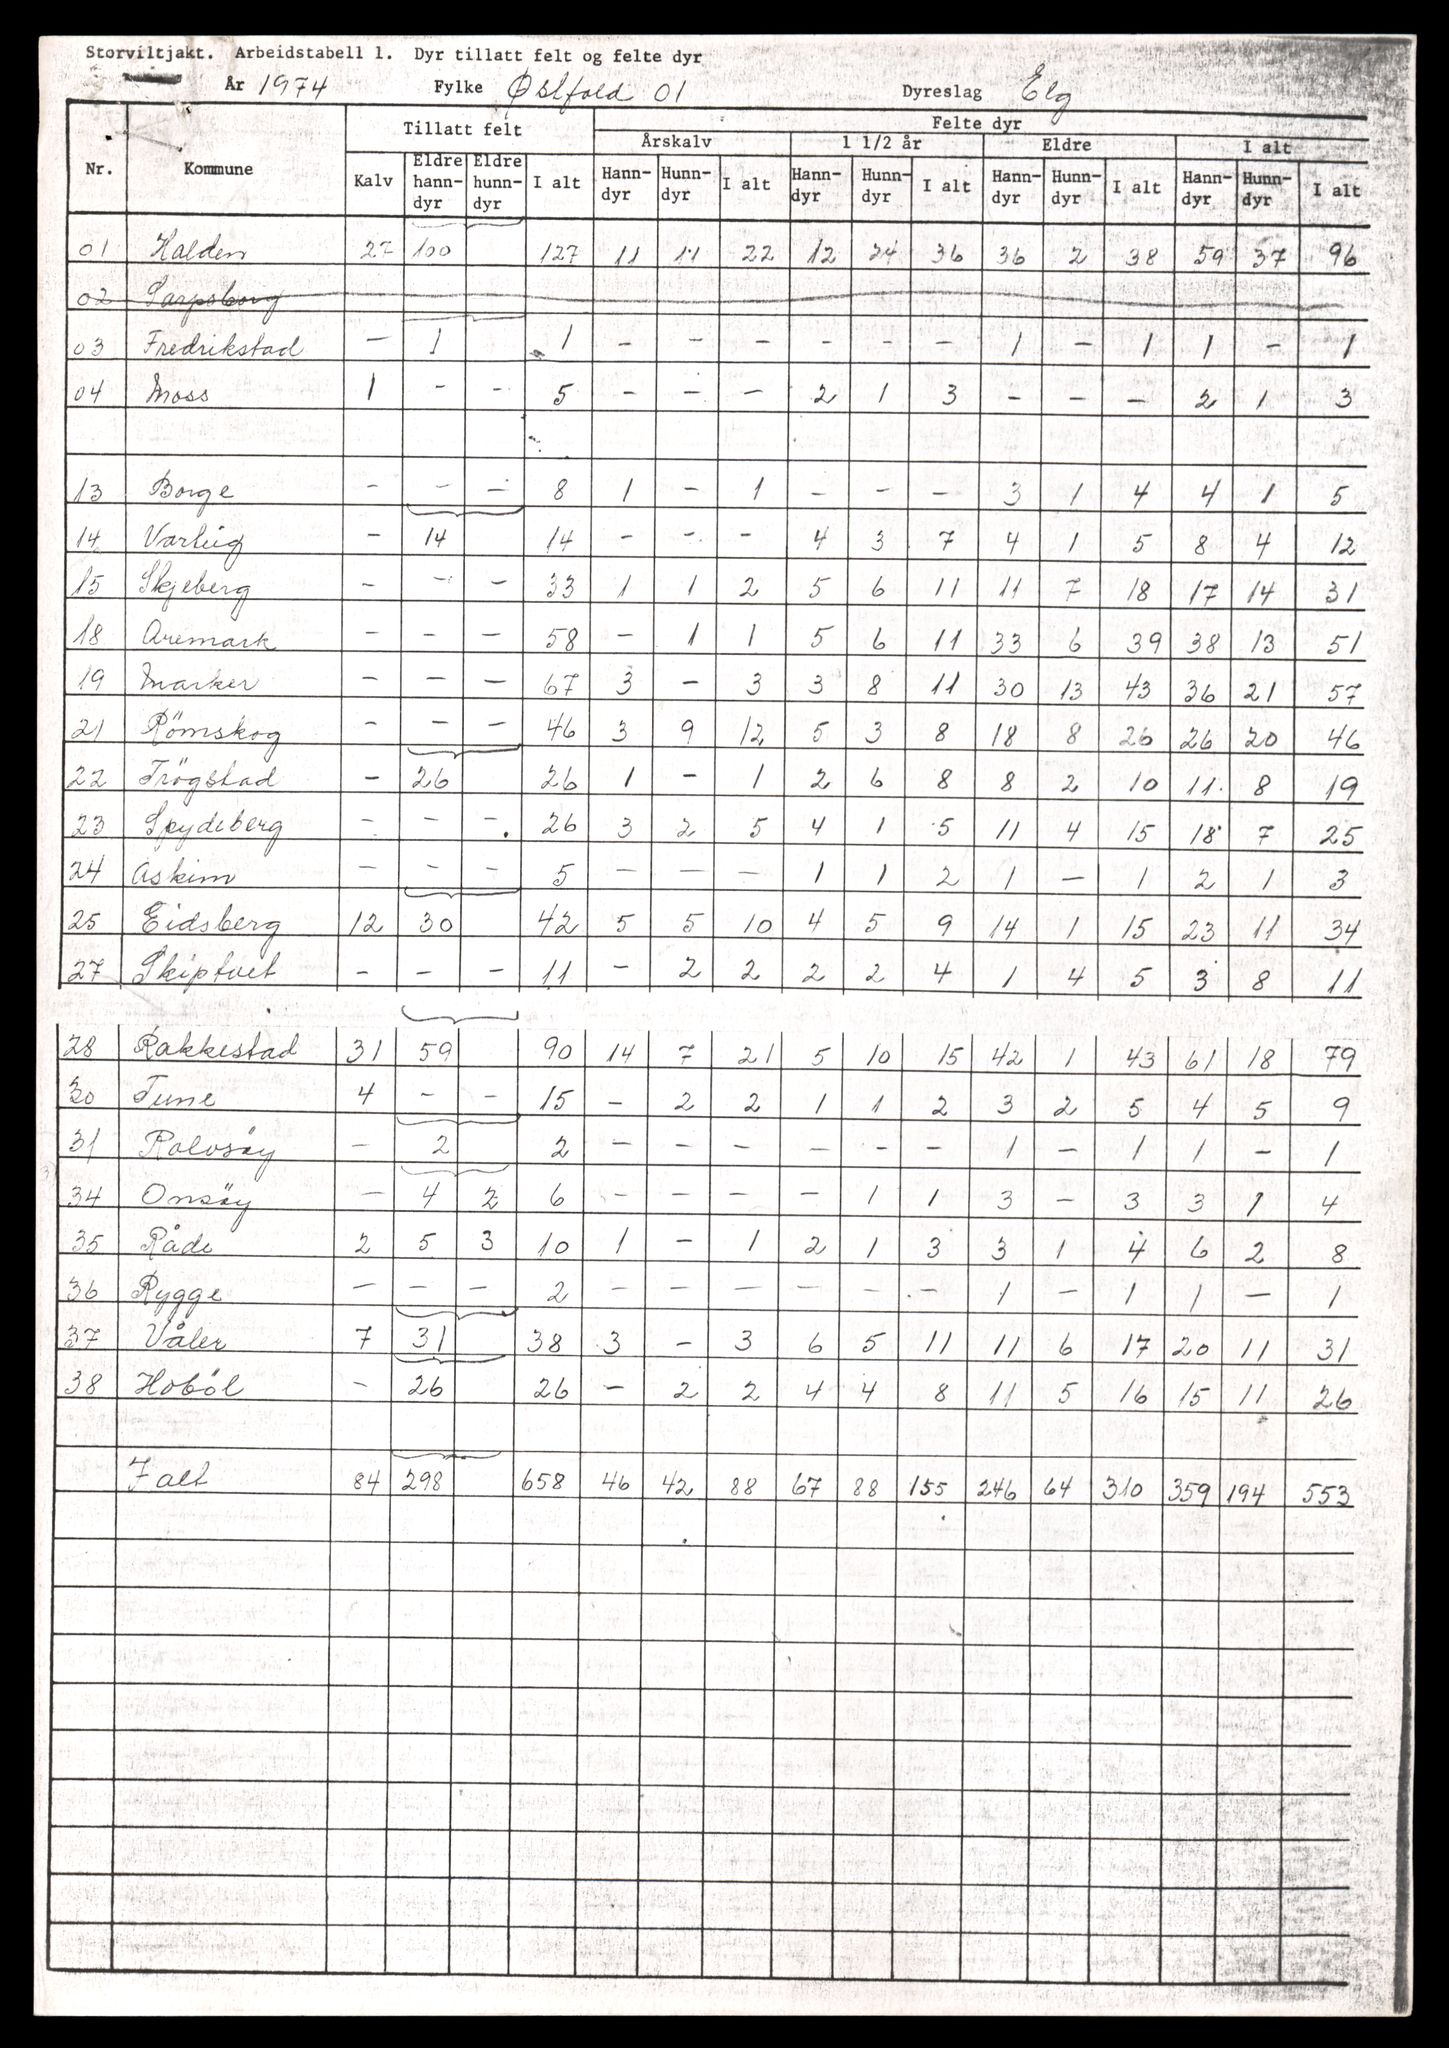 Storviltjakt. Arbeidstabell 1. Dyr tillatt felt og felte dyr
År 1974 Fylke Østfold 01 Dyreslag Elg
Tillatt felt Felte dyr
Årskalv 1 1/2 år Eldre I alt
Nr. Kommune Kalv Eldre hann-dyr Eldre hunn-dyr I alt Hann-dyr Hunn-dyr I alt Hann-dyr Hunn-dyr I alt Hann-dyr Hunn-dyr I alt Hann-dyr Hunn-dyr I alt
01 Halden 27 100 127 11 11 22 12 24 36 36 2 38 59 37 96
02 Sarpsborg
03 Fredrikstad - 1 1 - - - - - - 1 - 1 1 - 1
04 Moss 1 - - 5 - - - 2 1 3 - - - 2 1 3
13 Borge - - - 8 1 - 1 - - - 3 1 4 4 1 5
14 Varteig - 14 14 - - - 4 3 7 4 1 5 8 4 12
15 Skjeberg - - - 33 1 1 2 5 6 11 11 7 18 17 14 31
18 Aremark - - - 58 - 1 1 5 6 11 33 6 39 38 13 51
19 Marker - - - 67 3 - 3 3 8 11 30 13 43 36 21 57
21 Römskog - - - 46 3 9 12 5 3 8 18 8 26 26 20 46
22 Trögstad - 26 26 1 - 1 2 6 8 8 2 10 11 8 19
23 Spydeberg - - - 26 3 2 5 4 1 5 11 4 15 18 7 25
24 Askim - - - 5 - - - 1 1 2 1 - 1 2 1 3
25 Eidsberg 12 30 42 5 5 10 4 5 9 14 1 15 23 11 34
27 Skiptvet - - - 11 - 2 2 2 2 4 1 4 5 3 8 11
28 Rakkestad 31 59 90 14 7 21 5 10 15 42 1 43 61 18 79
30 Tune 4 - - 15 - 2 2 1 1 2 3 2 5 4 5 9
31 Rolvsöy - 2 2 - - - - - - 1 - 1 1 - 1
34 Onsöy - 4 2 6 - - - - 1 1 3 - 3 3 1 4
35 Råde 2 5 3 10 1 - 1 2 1 3 3 1 4 6 2 8
36 Rygge - - - 2 - - - - - - 1 - 1 1 - 1
37 Våler 7 31 38 3 - 3 6 5 11 11 6 17 20 11 31
38 Hoböl - 26 26 - 2 2 4 4 8 11 5 16 15 11 26
I alt 84 298 658 46 42 88 67 88 155 246 64 310 359 194 553